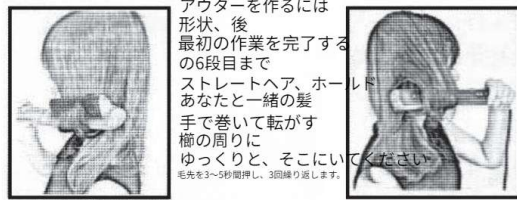 アウターを作るには
形状、後
最初の作業を完了する
の6段目まで
ストレートヘア、ホールド
あなたと一緒の髪
手で巻いて転がす
櫛の周りに
ゆっくりと、そこにいてください
毛先を3～5秒間押し、3回繰り返します。